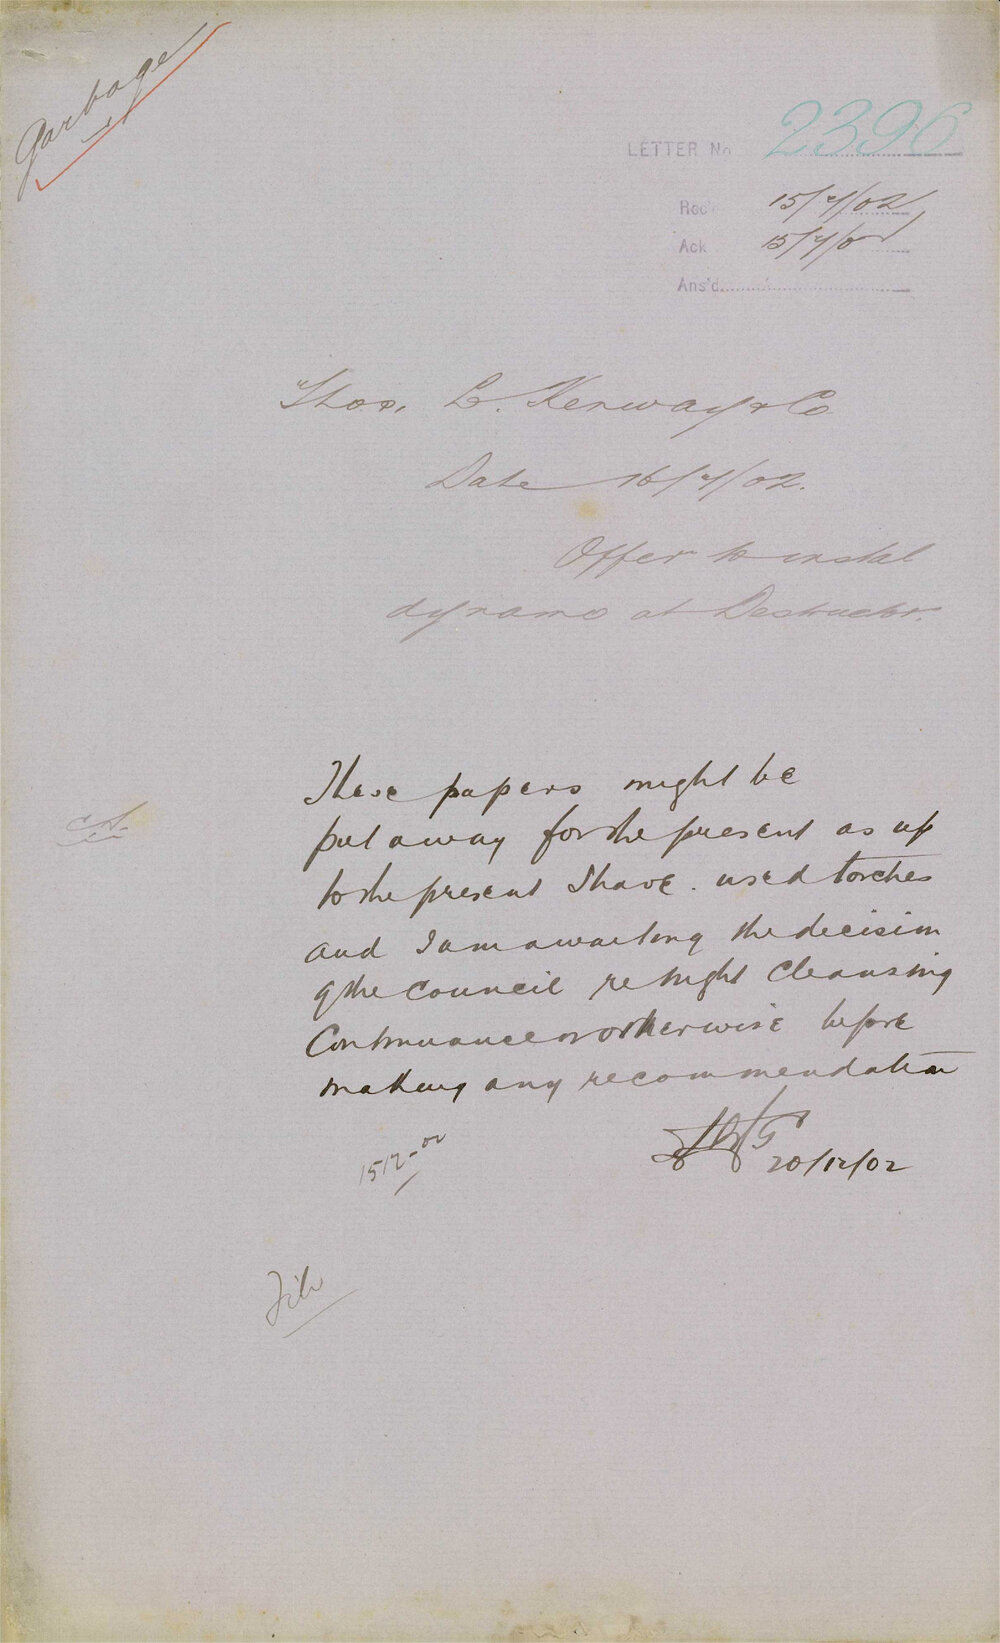 Garbage
LETTER No 2396
Rec'd 15/4/02
Ack 15/4/02
Ans'd
Thos. L. Kerway & Co
Date 16/4/02.
Offer to instal
dynamo at Destructor.
These papers might be
put away for the present as up
to the present I have used torches
and I am awaiting the decision
of the council re night cleansing
Continuance or otherwise before
making any recommendation
20/12/02
1512-02
File